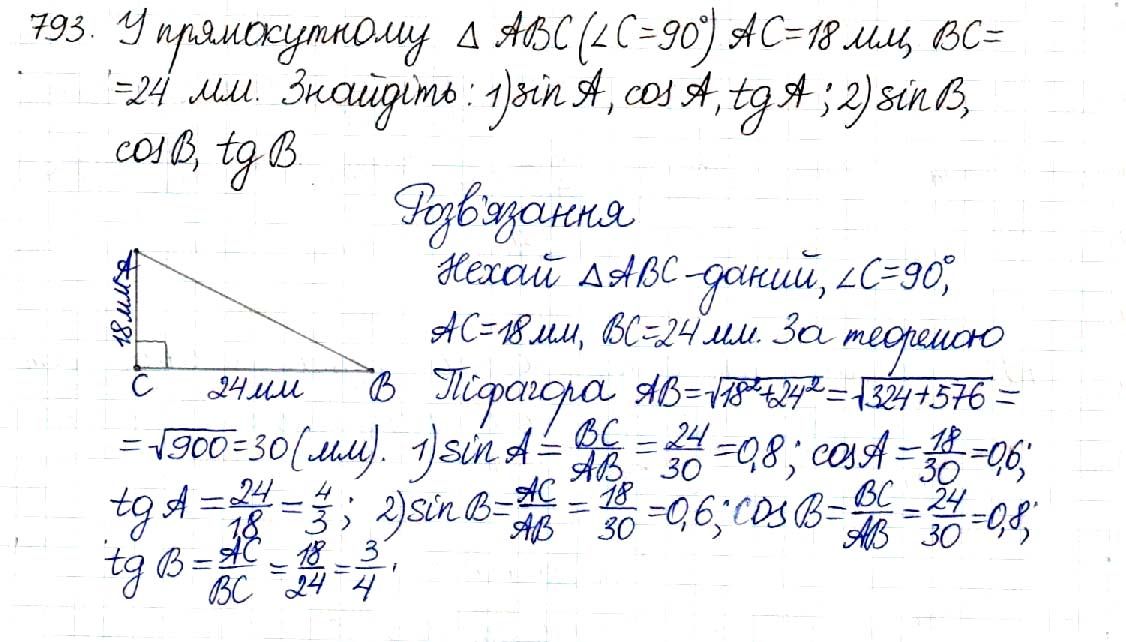 793. У прямокутному △ ABC (∠C=90°) AC=18 мм, BC=
=24 мм. Знайдіть: 1) sin A, cos A, tg A; 2) sin B,
cos B, tg B
Розв'язання
Нехай △ ABC - даний, ∠C=90°,
AC=18 мм, BC=24 мм. За теоремою
Піфагора AB=√18²+24²=√324+576=
=√900=30 (мм). 1) sin A=BC/AB=24/30=0,8; cos A=18/30=0,6;
tg A=24/18=4/3; 2) sin B=AC/AB=18/30=0,6; cos B=BC/AB=24/30=0,8;
tg B=AC/BC=18/24=3/4.
A
18 мм
C
24 мм
B